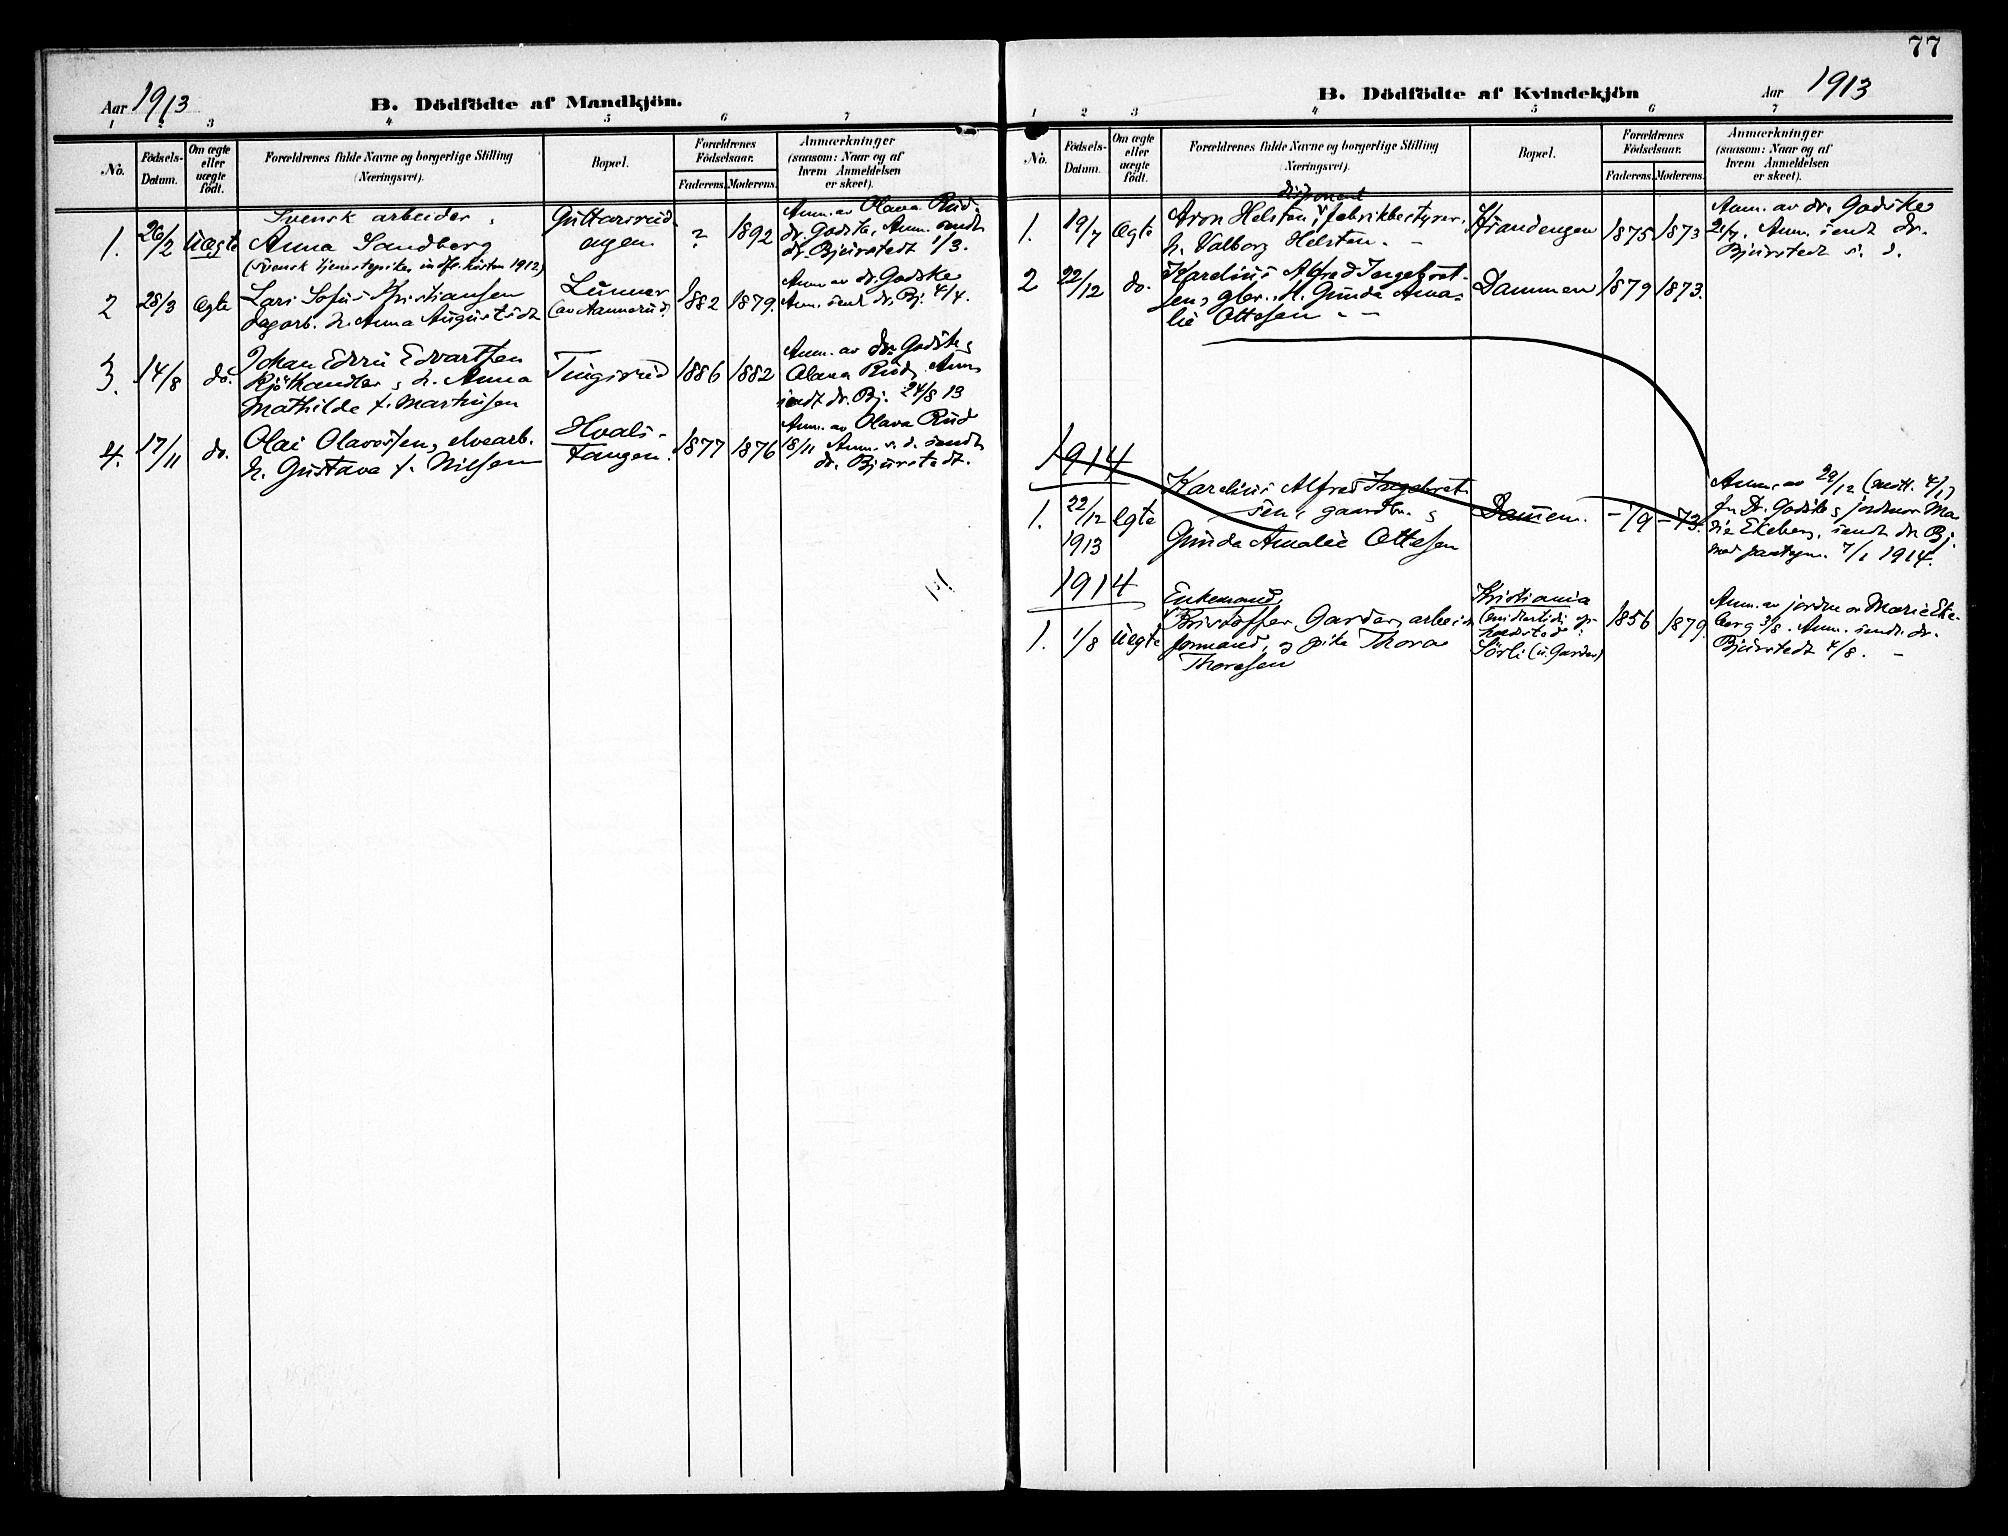 Aar 1913
B. Dödfödte af Mandkjön.
1 2 3 4 5 6 7
No.
Födsels-
Datum.
Om ægte
eller
uægte
födt.
Forældrenes fulde Navne og borgerlige Stilling
(Næringsvei).
Bopæl.
Forældrenes
Födselsaar.
Faderens. Moderens.
Anmærkninger
(saasom: Naar og af
hvem Anmeldelsen
er skeet).
1. 26/2 Uægte
Svensk arbeider,
Anna Sandberg
(svensk tjenestepike, indfl. høsten 1912)
Guttersrud-
angen.
? 1892
Anm. av Olava Rud,
dr. Godske, Anm. sendt
dr. Bjurstedt 1/3.
2 28/3 Ægte
Lars Sofus Kristiansen
dagarb. h. Anna Augustsdt
Lunner
(av Aannerud)
1882 1879.
Anm. av dr. Godske
Anm. sent dr. Bj. 4/4.
3. 14/8 do.
Johan Edvin Edvartsen
Kjøthandler, h. Anna
Mathilde f. Martinsen
Tingsrud
1886 1882
Anm. av dr. Godske,
Olava Rud, Anm.
sendt dr. Bj. 24/8 13
4. 17/11 do.
Olai Olavessen, elvearb.
h. Gustava f. Nilsen
Hvals-
tangen.
1877 1876
Anm. av Olava Rud
18/11 Anm. s. d. sendt
dr. Bjurstedt.
77
B. Dödfödte af Kvindekjön
Aar 1913
1 2 3 4 5 6 7
No.
Födsels-
Datum.
Om ægte
eller
uægte
födt.
Forældrenes fulde Navne og borgerlige Stilling
(Næringsvei).
Bopæl.
Forældrenes
Födselsaar.
Faderens. Moderens.
Anmærkninger
(saasom: Naar og af
hvem Anmeldelsen
er skeet).
1. 19/7 Ægte
disponent
Aron Helsten, fabrikbestyrer.
h. Valborg Helsten. -
Strandengen
1875 1873
Anm. av dr. Godske
21/7. Anm. sendt dr.
Bjurstedt s. d.
2 22/12 do.
Karelius Alfred Ingebret-
sen, gbr. H. Gunda Ama-
lie Ottesen - -
Dammen
1879 1873.
1914
1. 22/12 1913 Egte
Karelius Alfred Ingebret-
sen, gaardbr. &
Gunda Amalie Ottesen
Dammen.
-79 -73.
Anm. av 29/12 (mott. 4/1)
fra Dr. Godske & jordmor Ma-
rie Ekeberg, sendt dr. Bj.
7/1 1914.
1914
1. 1/8 Uegte
Enkemand
Kristoffer Garder, arbeids-
formand, og pike Thora
Thoresen
Kristiania
(midlertidig op-
holdssted:
Sörli (u. Garder)
1856 1879.
Anm. av jordmor Marie Eke-
berg 3/8. Anm. sendt dr.
Bjurstedt 4/8. -